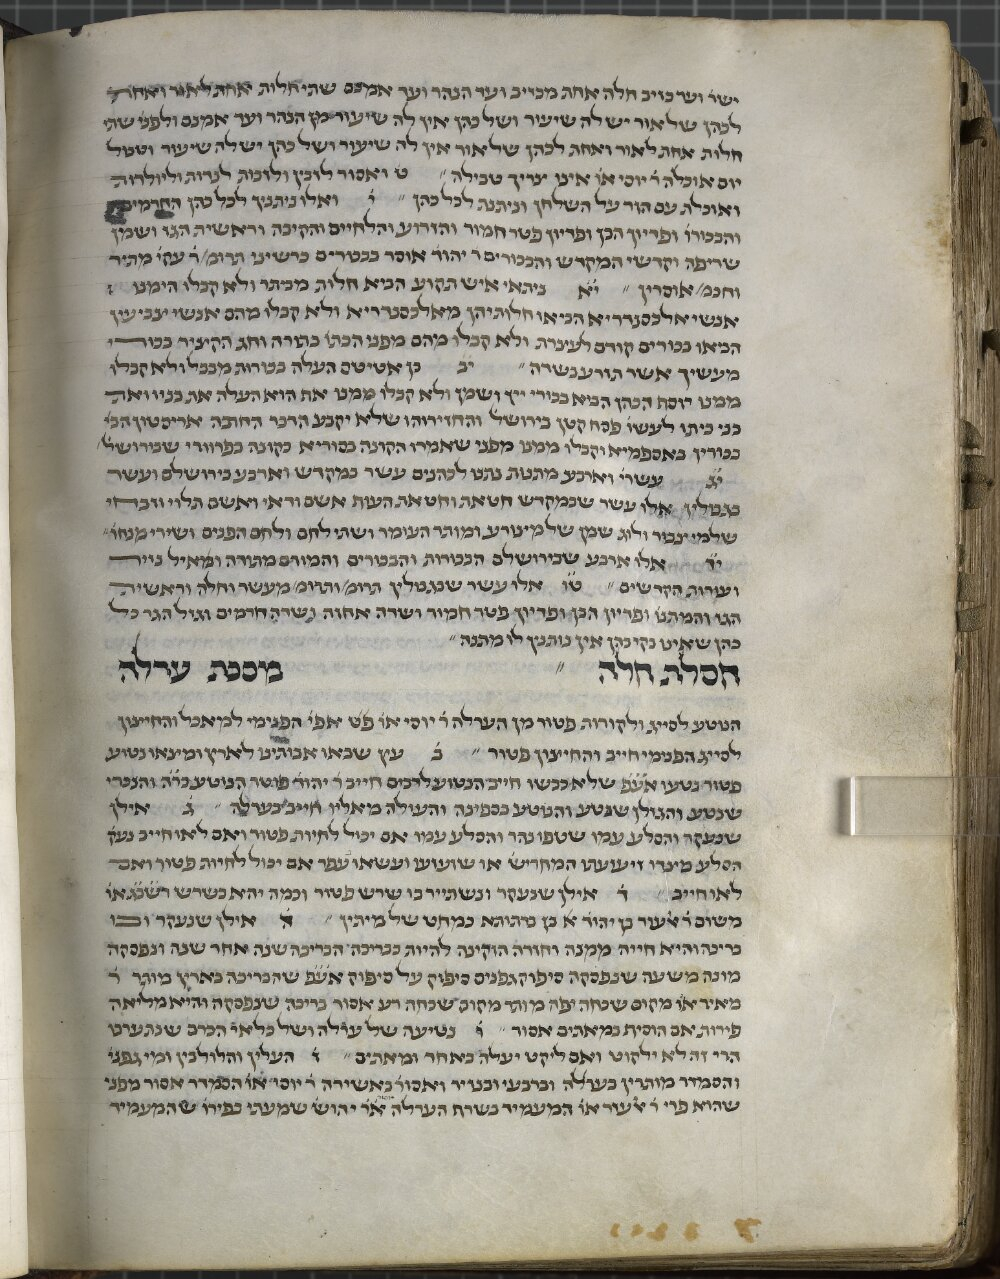 ישר׳ ועד כזיב חלה אחת מכזיב ועד הנהר ועד אמנם שתי חלות אחת לאור ואחת
לכהן של אור יש לה שיעור ושל כהן אין לה שיעור מן הנהר ועד אמנם ולפני׳ שתי
חלות אחת לאור ואחת לכהן של אור אין לה שיעור ושל כהן יש לה שיעור וטבול
יום אוכלה ר׳ יוסי או׳ אינו צריך טבילה ״ ט ואסור׳ לזבין ולזבות לנדות וליולדות
ואוכלת עם הזר על השלחן וניתנה לכל כהן ״ י ואלו ניתנין לכל כהן החרמים
והבכורו׳ ופריון הבן ופריון פטר חמור והזרוע והלחיים והקיבה וראשית הגז ושמן
שריפה וקדשי המקדש והבכורים ר׳ יהוד׳ אוסר בבכורים כרשינו תרומ׳ ר׳ עקי׳ מתיר
וחכמ׳ אוסרין ״ יא ניתאי איש תקוע הביא חלות מביתר ולא קבלו הימנו
אנשי אלכסנדריא הביאו חלותיהן מאלכסנדריא ולא קבלו מהם אנשי צבועין
הביאו בכורים קודם לעצרת ולא קבלו מהם מפני הכתו׳ בתורה וחג הקציר בכורי
מעשיך אשר תזרע בשדה ״ יב בן אטיטס העלה בכורות מבבל ולא קבלו
ממנו יוסף הכהן הביא בכורי יין ושמן ולא קבלו ממנו אף הוא העלה את בניו ואת
בני ביתו לעשו׳ פסח קטן בירושל׳ והחזירוהו שלא יקבע הדבר החובה אריסטון הבי׳
בכורין מאספמיא וקבלו ממנו מפני שאמרו הקונה בסוריא כקונה בפרוורי שבירושל׳
יג עשרי׳ וארבע מתנות נתנו לכהנים עשר במקדש וארבע בירושלם ועשר
בגבולין אלו עשר שבמקדש חטאת וחטאת העוף אשם ודאי ואשם תלוי וזבחי
שלמי ציבור ולוג שמן של מצורע ומותר העומר ושתי לחם ולחם הפנים ושירי מנחו׳
יד אלו ארבע שבירושלם הבכורות והבכורים והמורם מתודה ומאיל נזיר
ועורות הקדשים ״ טו אלו עשר שבגבולין תרומ׳ ותרומ׳ מעשר וחלה וראשית
הגז והמתנו׳ ופריון הבן ופריון פטר חמור ושדה אחוזה ושדה חרמים וגזל הגר כל
כהן שאינו בקי בהן אין נותנין לו מתנה ״
חסלת חלה ״ מסכת ערלה
הנוטע לסייג ולקורות פטור מן הערלה ר׳ יוסי או׳ פט׳ אפי׳ הפנימי למאכל והחיצון
לסייג הפנימי חייב והחיצון פטור ״ ב עץ שבאו אבותינו לארץ ומצאו נטוע
פטור נטעו אע״פ שלא כבשו חייב הנוטע לרבים חייב ר׳ יהוד׳ פוטר הנוטע ברה׳ והנכרי
שנטע והגוזלן שנטע והנוטע בספינה והעולה מאליו חייב בערלה ״ ג אילן
שנעקר והסלע עמו שטפו נהר והסלע עמו אם יכול לחיות פטור ואם לאו חייב נעק׳
הסלע מצדו זיעזעתו המחריש׳ או שזעזעו ועשאו עפר אם יכול לחיות פטור ואם
לאו חייב ״ ד אילן שנעקר ונשתייר בו שרש פטור וכמה יהא בשרש רשב״ג או׳
משום ר׳ אלעזר בן יהוד׳ א׳ בן ברתותא כמחט של מיתין ״ ה אילן שנעקר ובו
בריכה והיא חייה ממנה חזרה הזקינה להיות כבריכה הבריכה שנה אחר שנה ונפסקה
מונה משעה שנפסקה סיפוק גפנים סיפוק על סיפוק אע״פ שהבריכה בארץ מותר ר׳
מאיר או׳ מקום שכחה יפה מותר מקום שכחה רע אסור בריכה שנפסקה והיא מליאה
פירות אם הוסיף במאתים אסור ״ ו נטיעה של ערלה ושל כלאי הכרם שנתערבו
הרי זה לא ילקוט ואם ליקט יעלה באחד ומאתים ״ ז העלין והלולבין ומי גפני׳
והסמדר מותרין בערלה וברבעי ובנזיר ואסורי׳ באשירה ר׳ יוסי או׳ הסמדר אסור מפני
שהוא פרי ר׳ אלעזר או׳ המעמיד בשרף הערלה א״ר יהוש׳ שמעתי בפירו׳ שהמעמיד